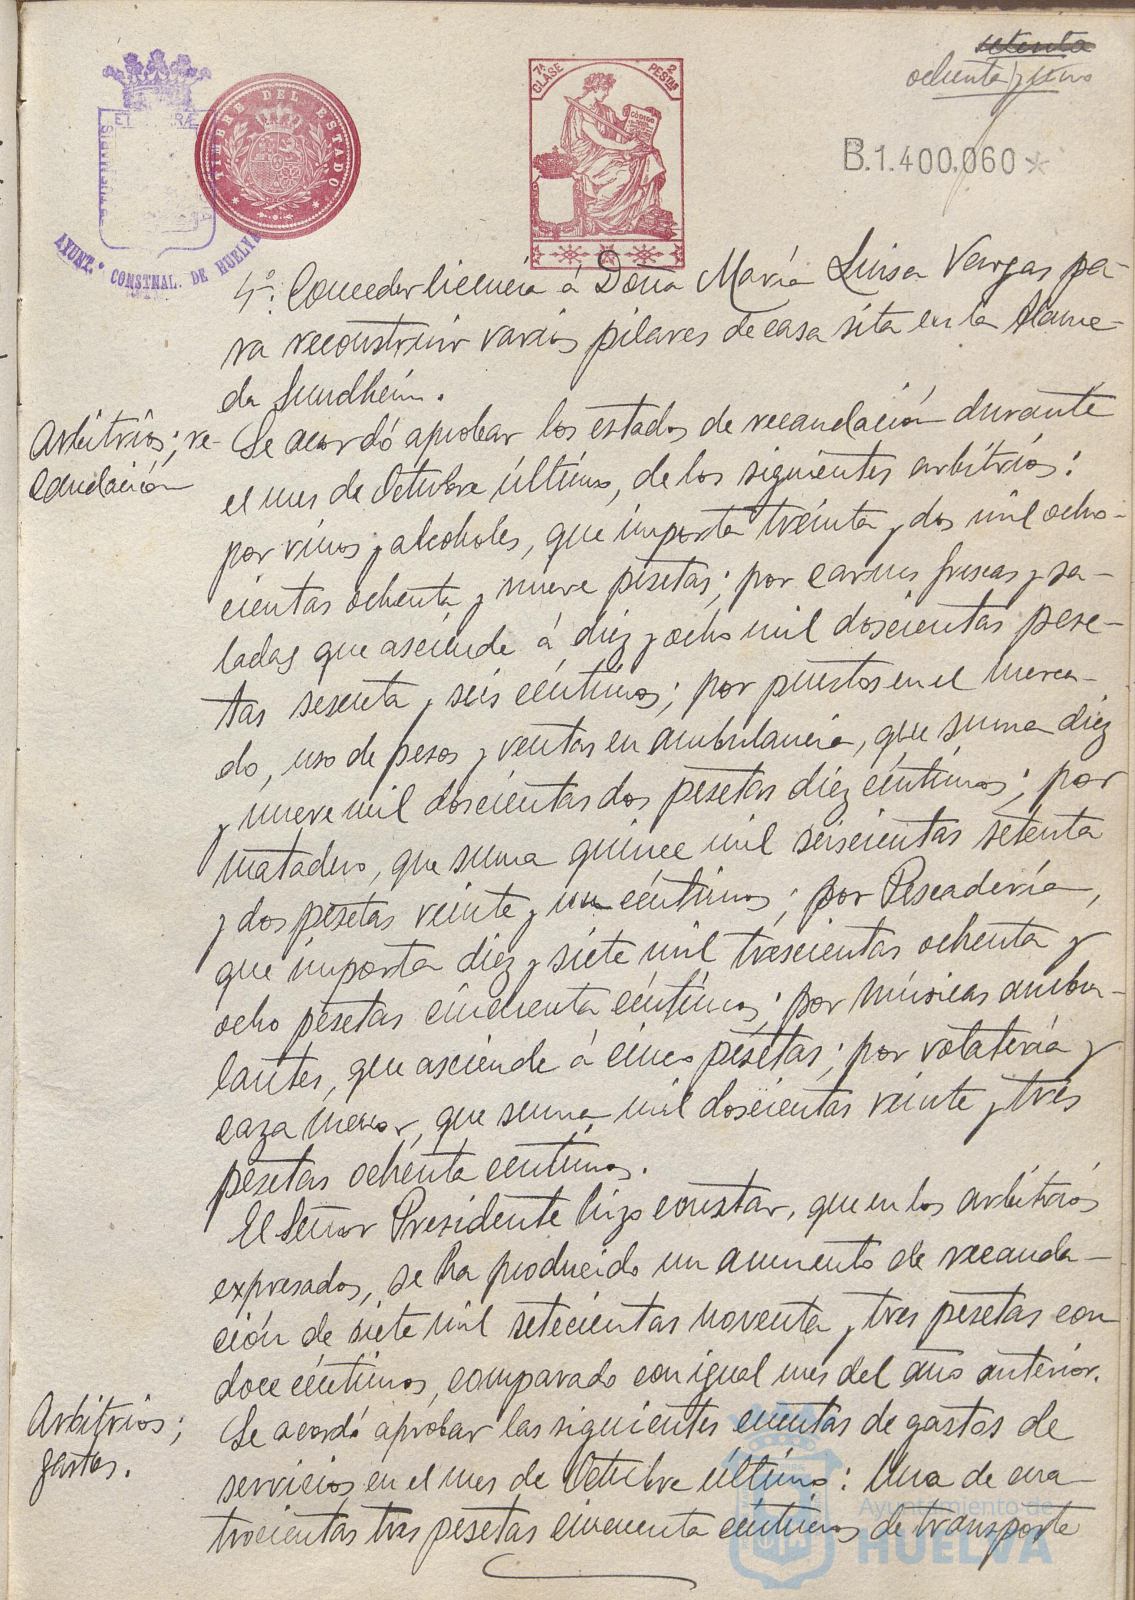 setenta
ochenta y uno
TIMBRE DEL ESTADO
7ª CLASE
2 PESTAS
CÓDIGO
B.1.400.060*
AYUNT.º CONSTNAL. DE HUELVA
4º. Conceder licencia á Doña María Luisa Vargas pa-
ra reconstruir varios pilares de casa sita en la Alame-
da Sundheim.
Arbitrios; re-
caudación
Se acordó aprobar los estados de recaudación durante
el mes de Octubre último, de los siguientes arbitrios:
por vinos y alcoholes, que importa treinta y dos mil ocho-
cientas ochenta y nueve pesetas; por carnes frescas y sa-
ladas que asciende á diez y ocho mil doscientas pese-
tas sesenta y seis céntimos; por puestos en el merca-
do, uso de pesos y ventas en ambulancia, que suma diez
y nueve mil doscientas dos pesetas diez céntimos; por
matadero, que suma quince mil seiscientas setenta
y dos pesetas veinte y un céntimos; por Pescadería,
que importa diez y siete mil trescientas ochenta y
ocho pesetas cincuenta céntimos; por músicas ambu-
lantes, que asciende á cinco pesetas; por volatería y
caza menor, que suma mil doscientas veinte y tres
pesetas ochenta centimos.
El Señor Presidente hizo constar, que en los arbitrios
expresados, se ha producido un aumento de recauda-
ción de siete mil setecientas noventa y tres pesetas con
doce céntimos, comparado con igual mes del año anterior.
Arbitrios;
gastos.
Se acordó aprobar las siguientes cuentas de gastos de
servicios en el mes de Octubre último: Una de cua-
trocientas tres pesetas cincuenta céntimos de transporte
Ayuntamiento de
HUELVA